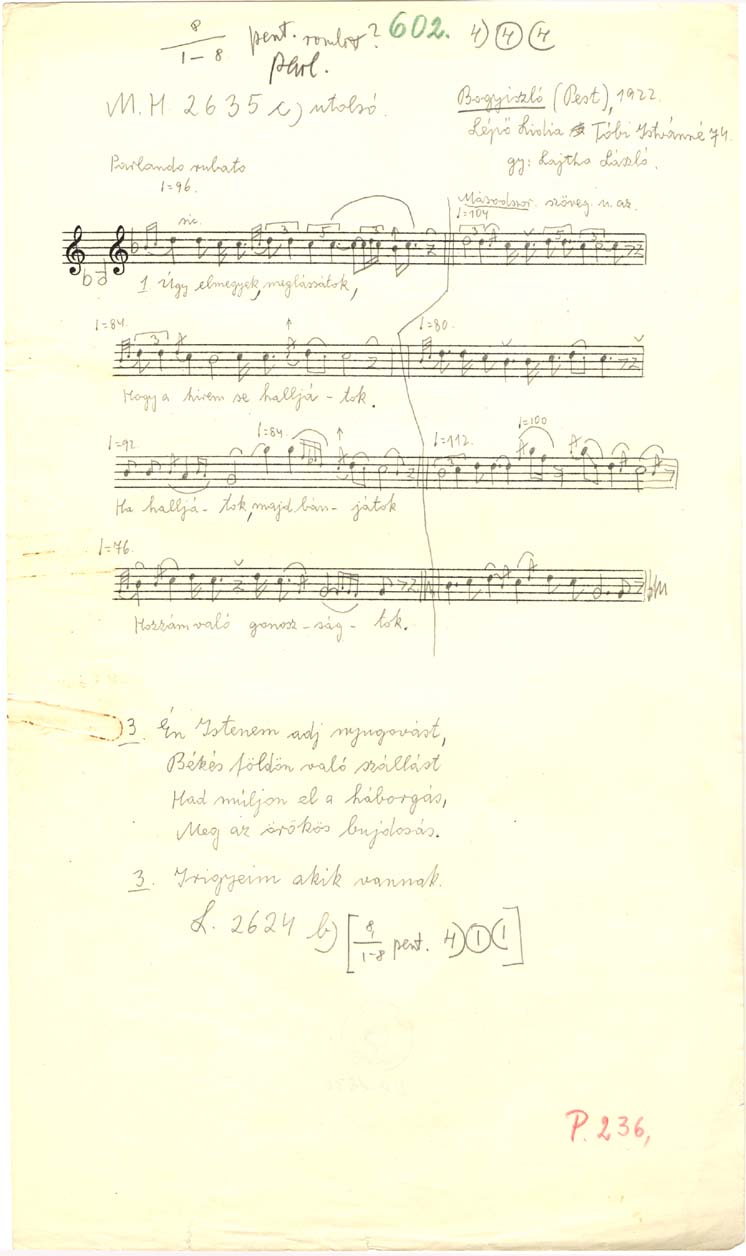 8
1–8 pent. romlot? 602. 4) ④ (4
Parl.
M. H. 2635 c) utolsó.
Bogyiszló (Pest), 1922.
Lépő Lidia Tóbi Istvánné 74.
gy: Lajtha László.
Parlando rubato
=96.
sic.
Másodszor. szöveg u. az.
=104
3 5
3 5 3
1. Úgy elmegyek, meglássátok,
=84.
=80.
3
Hogy a hirem se halljá – tok.
=92
=84.
=112.
=100
3
Ha halljá – tok, majd bán – játok
=76.
Hozzám való gonosz – ság – tok.
3. Én Istenem adj nyugovást,
Békés földön való szállást
Had múljon el a háborgás,
Meg az örökös bujdosás.
3. Irigyeim akik vannak.
L. 2624 b) [8
1–8 pent. 4) ① (1]
P. 236,